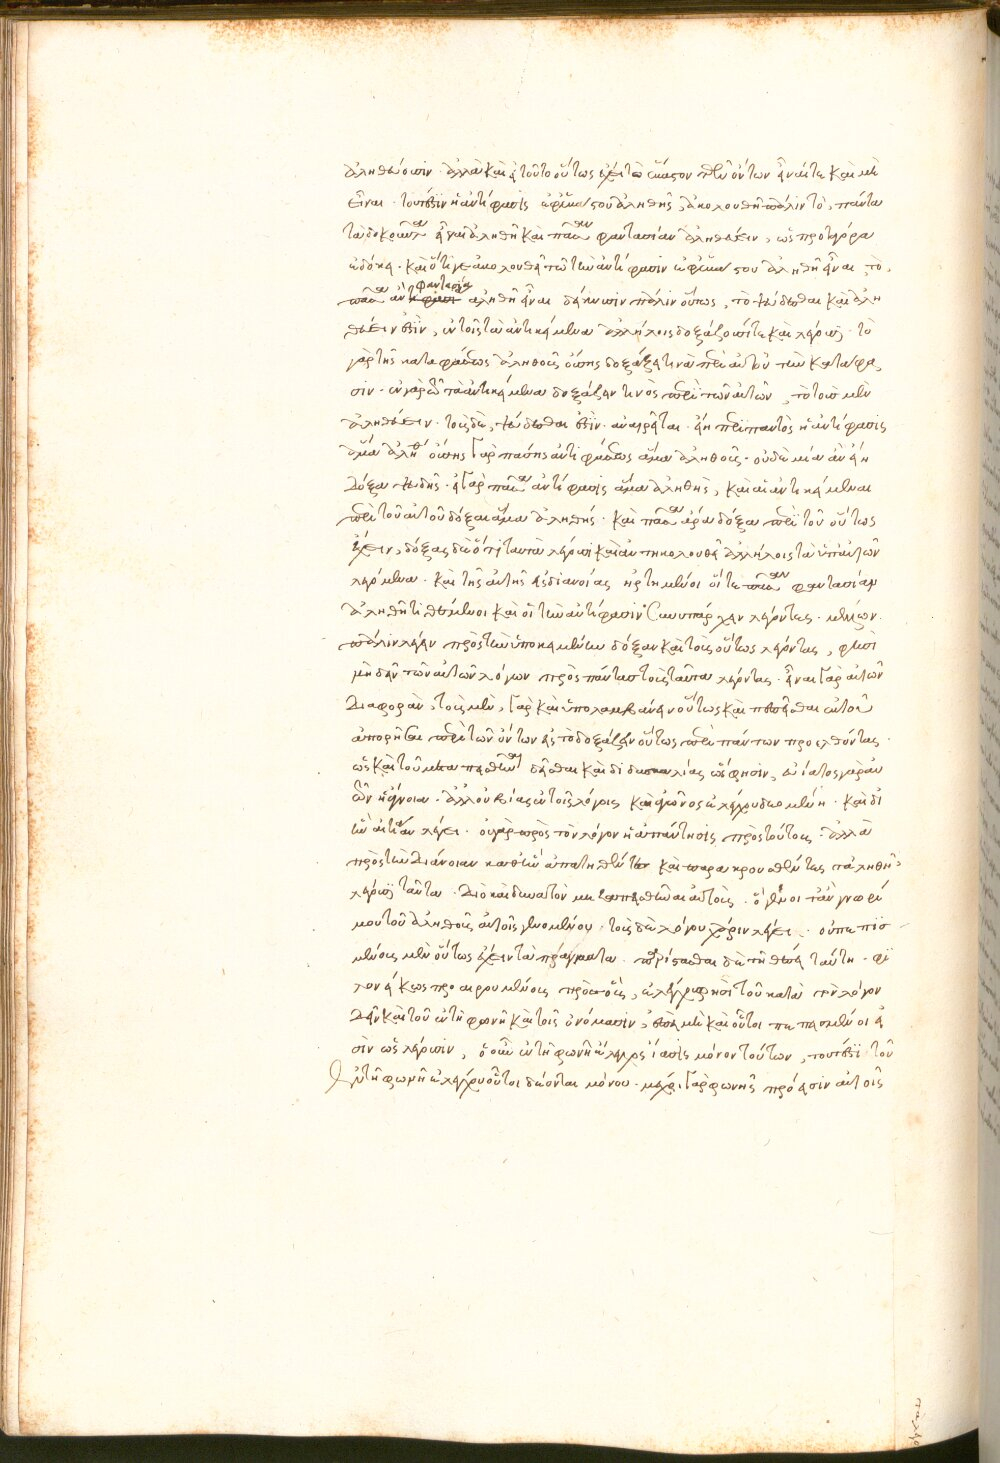 ἀληθεύουσιν. ἀλλὰ καὶ εἰ τοῦτο οὕτως ἔχει τὸ ἕκαστον τῶν ὄντων εἶναί τε καὶ μὴ
εἶναι. τουτέστιν ἡ ἀντίφασις ἐφ' ἑκάστου ἀληθής, ἀκολουθεῖ πάλιν τὸ, πάντα
τὰ δοκοῦντα εἶναι ἀληθῆ καὶ πᾶσαν φαντασίαν ἀληθεύειν, ὡς πρωταγόρᾳ
ἐδόκει. καὶ ὅτι γε ἀκολουθεῖ τῷ τὴν ἀντίφασιν ἐφ' ἑκάστου ἀληθῆ εἶναι, τὸ,
πᾶσαν φαντασίαν ἀληθῆ εἶναι δείκνυσιν πάλιν οὕτως, τὸ ψεύδεσθαι καὶ ἀλη
θεύειν ἐστὶν, ἐν τοῖς τὰ ἀντικείμενα ἀλλήλοις δοξάζουσί τε καὶ λέγουσι. τὸ
γὰρ τῆς καταφάσεως ἀληθοῦς οὔσης δοξάζειν τινὰ περὶ αὐτοῦ τὴν κατάφα
σιν. ἐν γὰρ τῷ τὰ ἀντικείμενα δοξάζειν τινὸς περὶ τῶν αὐτῶν, τὸ τοὺς μὲν
ἀληθεύειν. τοὺς δὲ, ψεύδεσθαι ἐστὶν. ἀναιρεῖται. εἰ ἡ περὶ παντὸς ἡ ἀντίφασις
ἅμα ἀληθής οὔσης γὰρ πάσης ἀντιφάσεως ἅμα ἀληθοῦς. οὐδεμία ἂν εἴη
δόξα ψευδής. εἰ γὰρ πᾶσα ἀντίφασις ἅμα ἀληθὴς, καὶ αἱ ἀντικείμεναι
περὶ τοῦ αὐτοῦ δόξαι ἅμα ἀληθεῖς. καὶ πᾶσα ἄρα δόξα περὶ τοῦ οὕτως
ἔχειν, δόξας δὲ ὅτι ταὐτὰ λέγουσι καὶ ἀντηκολουθεῖ ἀλλήλοις τὰ ὑπ' αὐτῶν
λεγόμενα. καὶ τῆς αὐτῆς εἰσι διανοίας ἠρτημένοι οἵ τε πᾶσαν φαντασίαν
ἀληθῆ τιθέμενοι καὶ οἱ τὴν ἀντίφασιν συνυπάρχειν λέγοντες.
πάλιν λέγει πρὸς τὴν ὑποκειμένην δόξαν καὶ τοὺς οὕτως λέγοντας, φησὶ
μὴ δεῖν τῶν αὐτῶν λόγων πρὸς πάντας τοὺς ταῦτα λέγοντας. εἶναι γὰρ αὐτῶν
διαφορὰν, τοὺς μὲν, γὰρ καὶ ὑπολαμβάνειν οὕτως καὶ πεπεῖσθαι αὐτοὺς
ἀπορῆσαι περὶ τῶν ὄντων εἰς τὸ δοξάζειν οὕτως περὶ πάντων προελθόντας.
ὡς καὶ τοῦ μεταπεισθῆναι δεῖσθαι καὶ διδασκαλίας ὥς φησιν, εὐίατος γὰρ αὐ
τῶν ἡ ἄγνοια. ἀλλ' οὐ βίας ἐν τοῖς λόγοις καὶ ἀγῶνος ἐλέγχου δεομένη. καὶ δι'
ἣν αἰτίαν λέγει. οὐ γὰρ πρὸς τὸν λόγον ἡ ἀπάντησις πρὸς τούτους. ἀλλὰ
πρὸς τὴν διάνοιαν καθ' ἣν ἀπατηθέντες καὶ παρακρουσθέντες τἀληθῆ
λέγουσι ταῦτα. διὸ καὶ δυνατὸν μεταπεισθῆναι αὐτοὺς. γνωρί
μου τοῦ ἀληθοῦς αὐτοῖς γενομένου. τοὺς δὲ λόγου χάριν λέγει. οὐ πεπισ
μένους μὲν οὕτως ἔχειν τὰ πράγματα. παρίστασθαι δὲ τῇ θέσει ταύτῃ. φι
λονείκως προαιρουμένους πρὸς οὓς, ἐλέγχου φησὶ τοῦ κατὰ τὸν λόγον
δεῖν καὶ τοῦ ἐν τῇ φωνῇ καὶ τοῖς ὀνόμασιν, ἐπεὶ μὴ καὶ οὗτοι πεπεισμένοι εἰ
σὶν ὡς λέγουσιν, ὁ οὖν ἐν τῇ φωνῇ ἔλεγχος ἴασις μόνον τούτων, τουτέστι τοῦ
ἐν τῇ φωνῇ ἐλέγχου οὗτοι δέονται μόνου. μέχρι γὰρ φωνῆς πρόεισιν αὐτοῖς